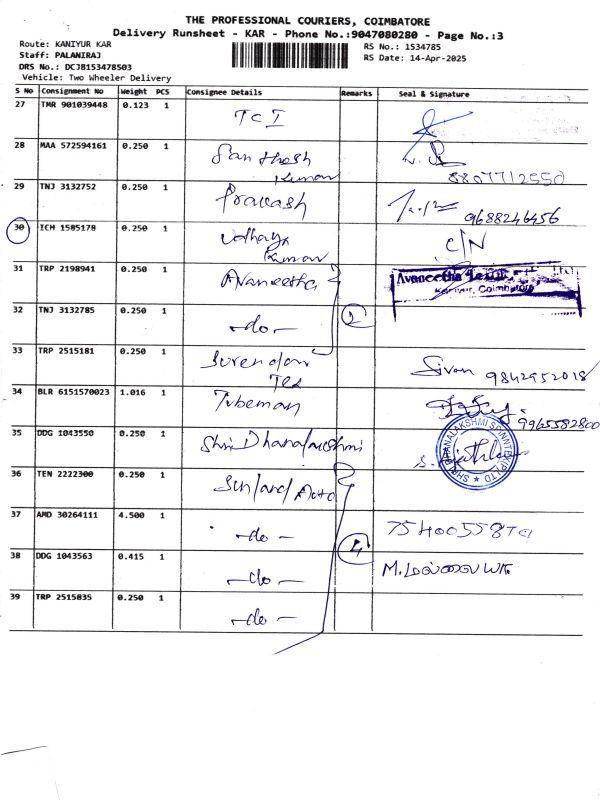 THE PROFESSIONAL COURIERS, COIMBATORE
Delivery Runsheet - KAR - Phone No.:9047080280 - Page No.:3
Route: KANIYUR KAR
RS No.: 1534785
Staff: PALANIRAJ
RS Date: 14-Apr-2025
DRS No.: DCJB153478503
Vehicle: Two Wheeler Delivery
S No Consignment No Weight PCS Consignee Details Remarks Seal & Signature
27 TMR 901039448 0.123 1 TCI
28 MAA 572594161 0.250 1 Santhosh Kumar 8807712550
29 TNJ 3132752 0.250 1 Prakash 9688246456
30 ICH 1585178 0.250 1 Udhaya Kumar C/N
31 TRP 2198941 0.250 1 Avaneetha Avaneetha
Kaniyur, Coimbatore
32 TNJ 3132785 0.250 1 -do- 2
33 TRP 2515181 0.250 1 Surendar Tex Sivan 9842952018
34 BLR 6151570023 1.016 1 Tubeman 9965582800
35 DDG 1043550 0.250 1 Shri Dhanalakshmi SHRI DHANALAKSHMI SPINNTEX (P) LTD
36 TEN 2222300 0.250 1 Sunland Auto
37 AMD 30264111 4.500 1 -do-
38 DDG 1043563 0.415 1 -do- 4 M.
39 TRP 2515835 0.250 1 -do-